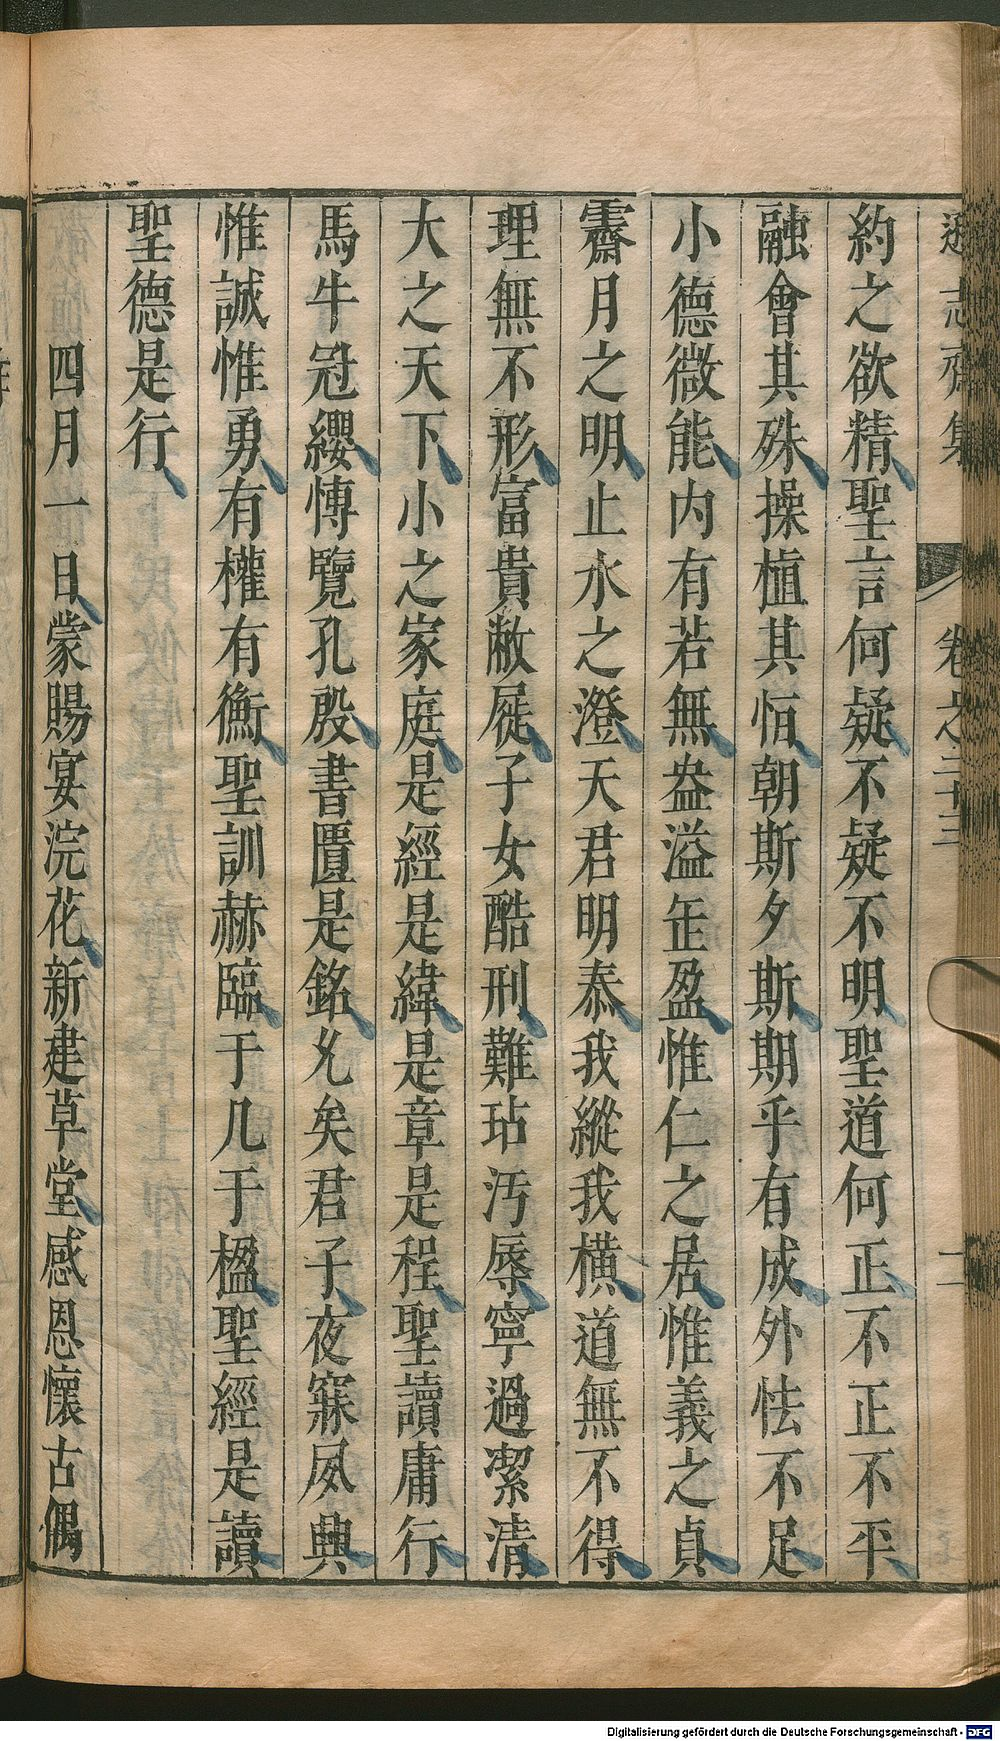 遜志齋集 卷之二十三 二
約之欲精聖言何疑不疑不明聖道何正不正不平
融會其殊操植其恒朝斯夕斯期乎有成外怯不足
小德微能内有若無盎溢缶盈惟仁之居惟義之貞
霽月之明止水之澄天君明泰我縱我橫道無不得
理無不形富貴敝屣子女酷刑難玷汚辱寧過潔清
大之天下小之家庭是經是緯是章是程聖讀庸行
馬牛冠纓愽覽孔殷書匱是銘允矣君子夜寐夙興
惟誠惟勇有權有衡聖訓赫臨于几于楹聖經是讀
聖德是行
四月一日蒙賜宴浣花新建草堂感恩懷古偶
Digitalisierung gefördert durch die Deutsche Forschungsgemeinschaft - DFG